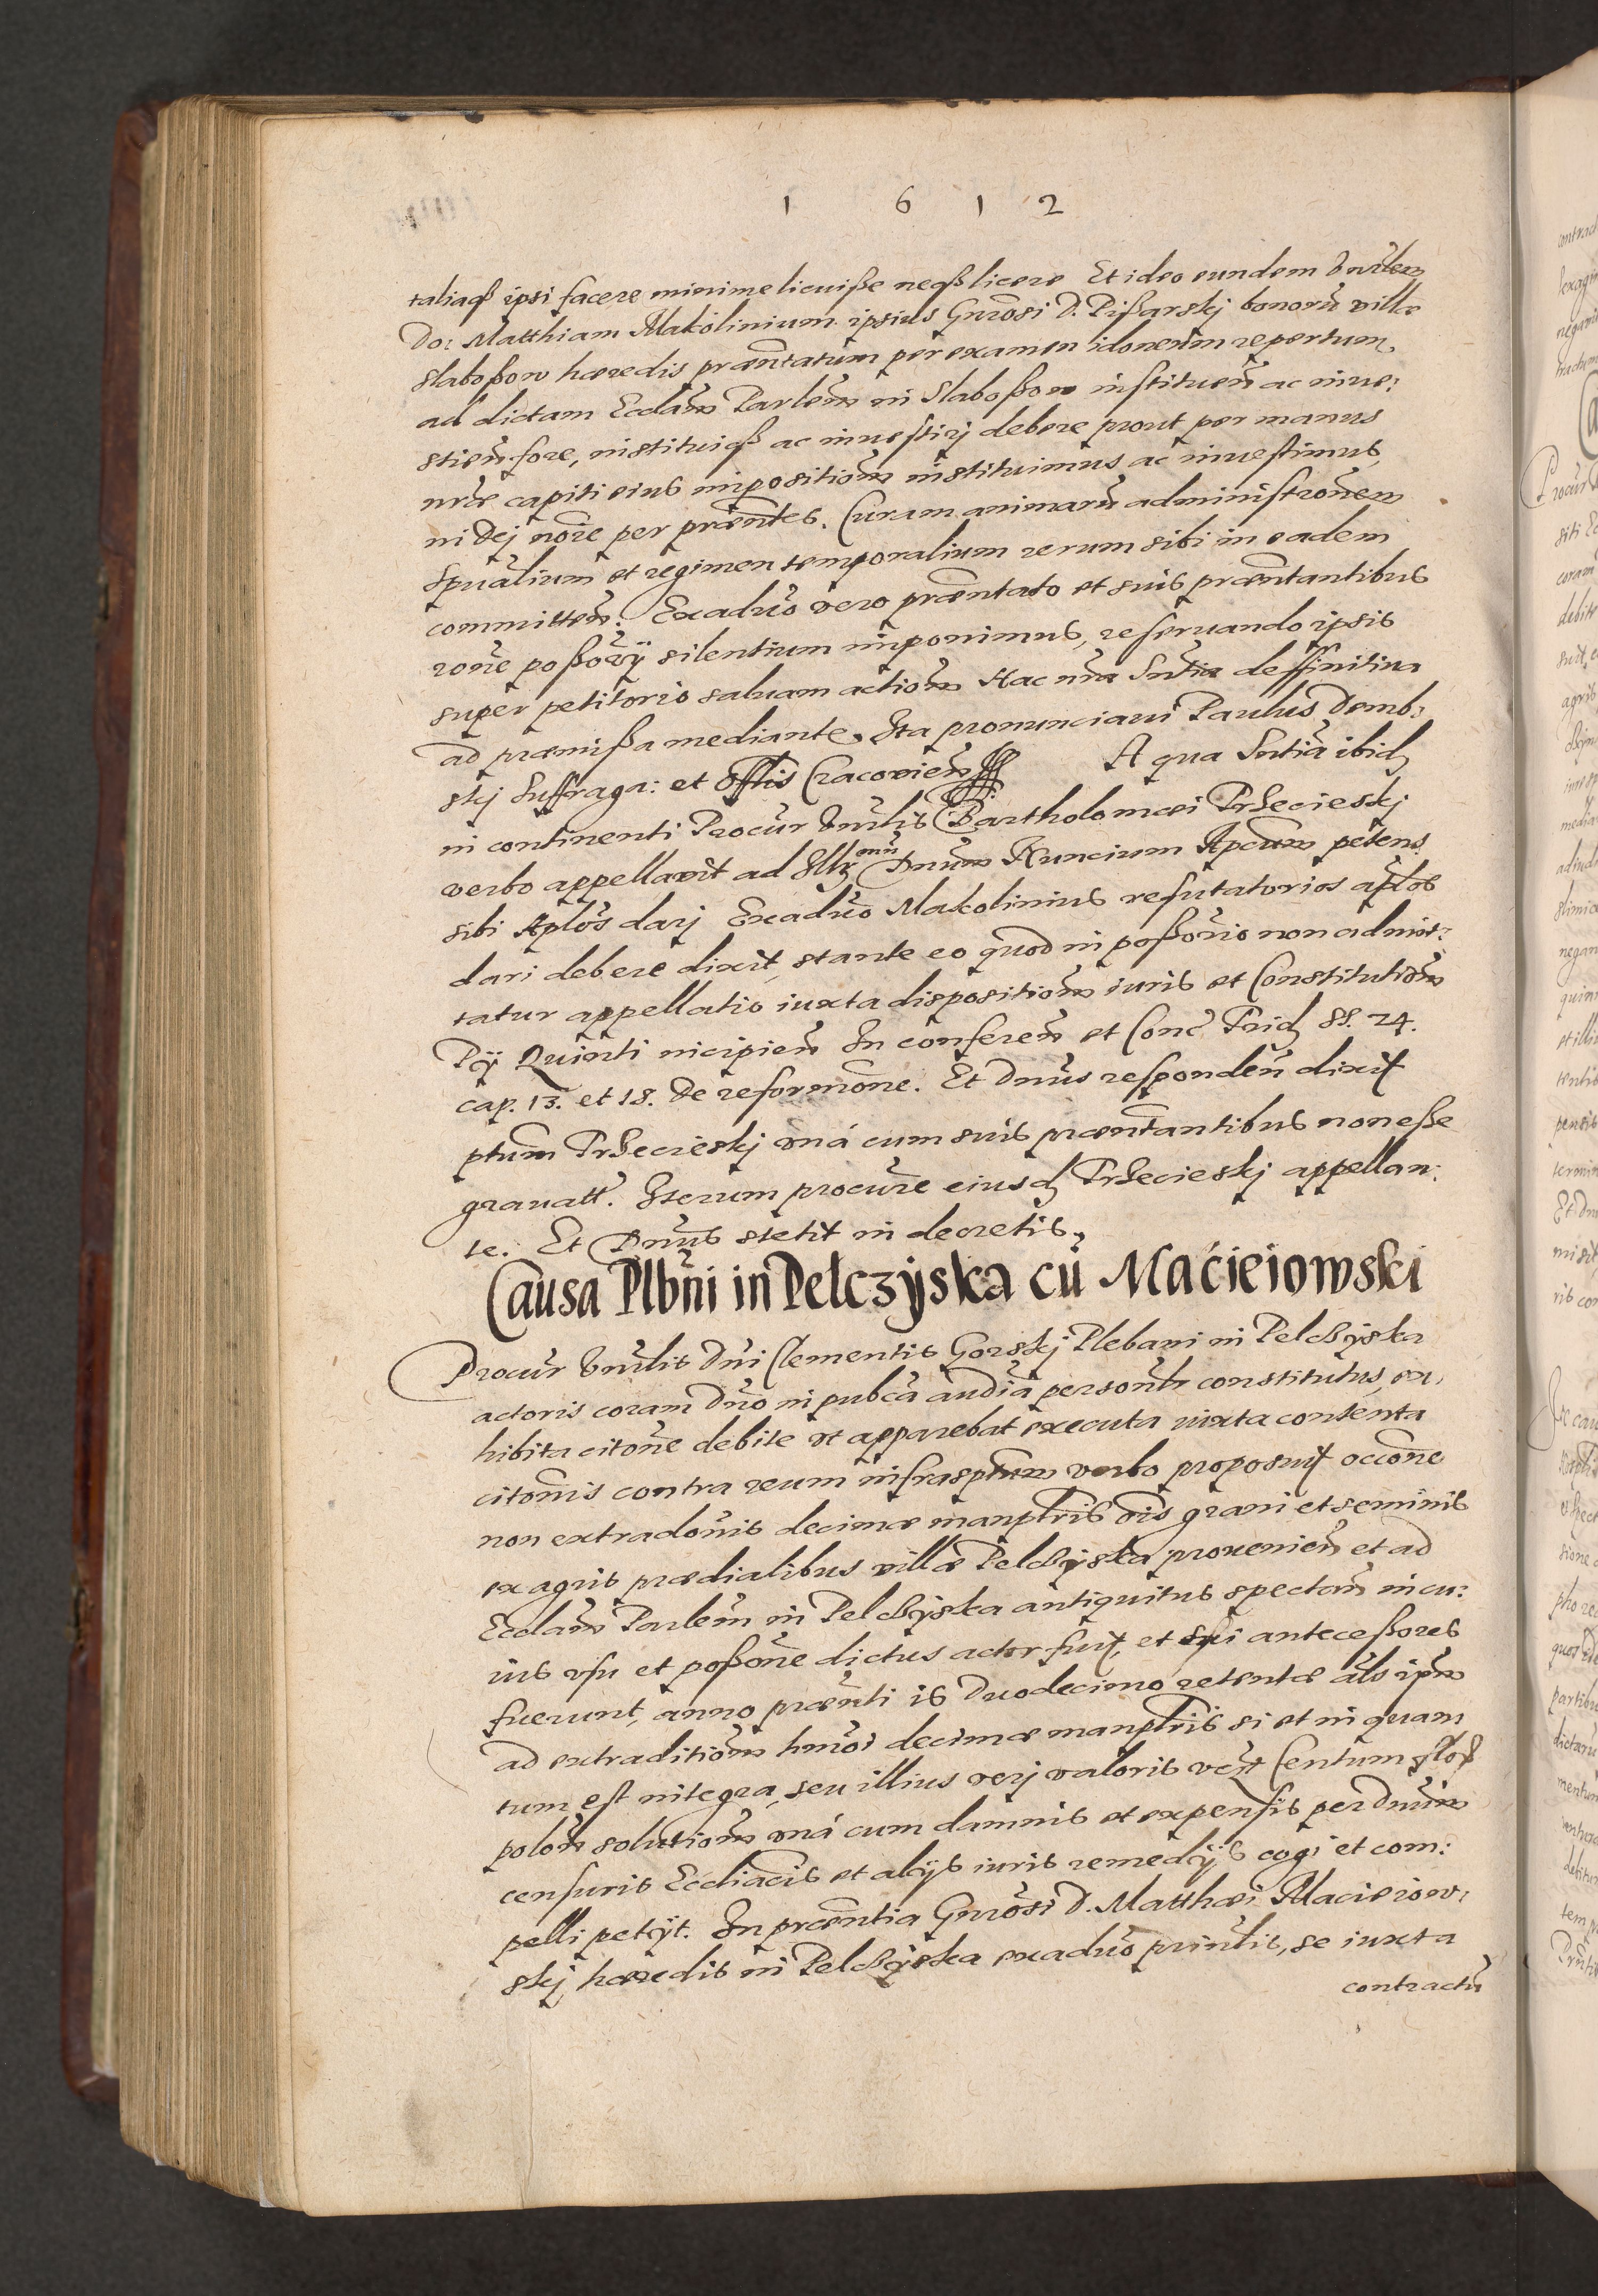 1 6 1 2
taliaq₃ ipsi facere minime licuiße neq₃ licere Et ideo eundem Vnrlem
Do: Matthiam Makolinium ipsius Gnrosi D. Pißarskj bonorū villæ
Slaboßow hæredis præntatum per examen idoneum repertum,
ad dictam Ecclam Parlem in Slaboßow instituen ac inue:
stien fore, instituiq₃ ac inuestirj debere prout per manus
nræ capiti eius impositionem instituimus ac inuestimus,
in Dej nore per præntes. Curam animarū administronem
Spualium et regimen temporalium rerum sibi in eadem
committen. Exaduo vero præntato et suis præntantibus
rone poßorÿ silentium imponimus, reseruando ipsis
super petitorio saluam actionem Hac nra Sntia deffinitiua
ad præmißa mediante. Ita pronunciaui Paulus Demb:
skj Suffraga: et Offlis Cracouien A qua Sntia ibid
in continenti Procur Vnrlis Bartholomæi Prżecieskj
verbo appellauit ad Illr mū Dnum Nuncium Aplcum petens
sibi Aplos darj Exaduo Makolinius refutatorios aplos
dari debere dixit, stante eo quod in poßorio non admit:
tatur appellatio iuxta dispositionem iuris et Constitutionem
Pÿ Quinti incipien In conferen et Conc Trid SS. 24.
cap. 13. et 18. de reformone. Et Dnus responden dixit
ptum Prżecieskj vná cum suis præntantibus non eße
grauatt. Iterum procure eiusd Prżecieskj appellan:
te. Et Dnus stetit in decretis.
Causa Plbni in Pelczÿska cū Maćieiowski
Procur Vnrlis Dni Clementis Gorskj Plebani in Pelcżÿska
actoris coram Dno in pubca audia personlr constitutus, ex,
hibita citone debite vt apparebat executa iuxta contenta
citonis contra reum infrascptum verbo proposuit occone
non extradonis decimæ manplris ois grani et seminis
ex agris prædialibus villæ Pelcżÿska prouenien et ad
Ecclam Parlem in Pelcżÿska antiquitus spectan in cu:
ius vsu et poßone dictus actor fuit, et sui anteceßores
fuerunt, anno prænti is duodecimo retentæ als ipm
ad extraditionem hmoi decimæ manplris si et in quan
tum est integra, seu illius verj valoris vczt Centum flor
polon solutionem vná cum damnis et expensis per Dnum
censuris Eccliacis et alÿs iuris remedÿs cogi et com:
pelli petÿt. In præntia Gnrosi D. Matthæi Macieiow:
skj hæredis in Pelcżÿska exaduo prinlis, se iuxta
contractū